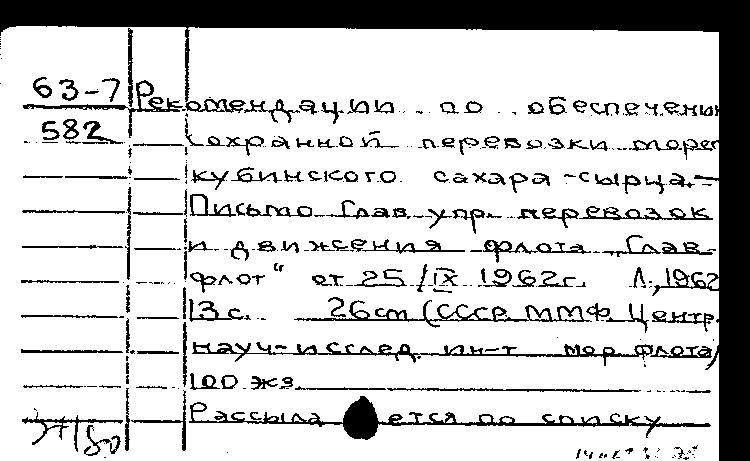 63-7 Рекомендации по обеспечени
582 сохранной перевозки морем
кубинского сахара-сырца.-
Письмо Глав. упр. перевозок
и движения флота „Глав-
флот“ от 25/IX 1962г. Л., 1962
13 с. 26 cm (СССР. ММФ. Центр.
науч-исслед. ин-т мор. флота)
100 экз.
Рассылается по списку
37/80